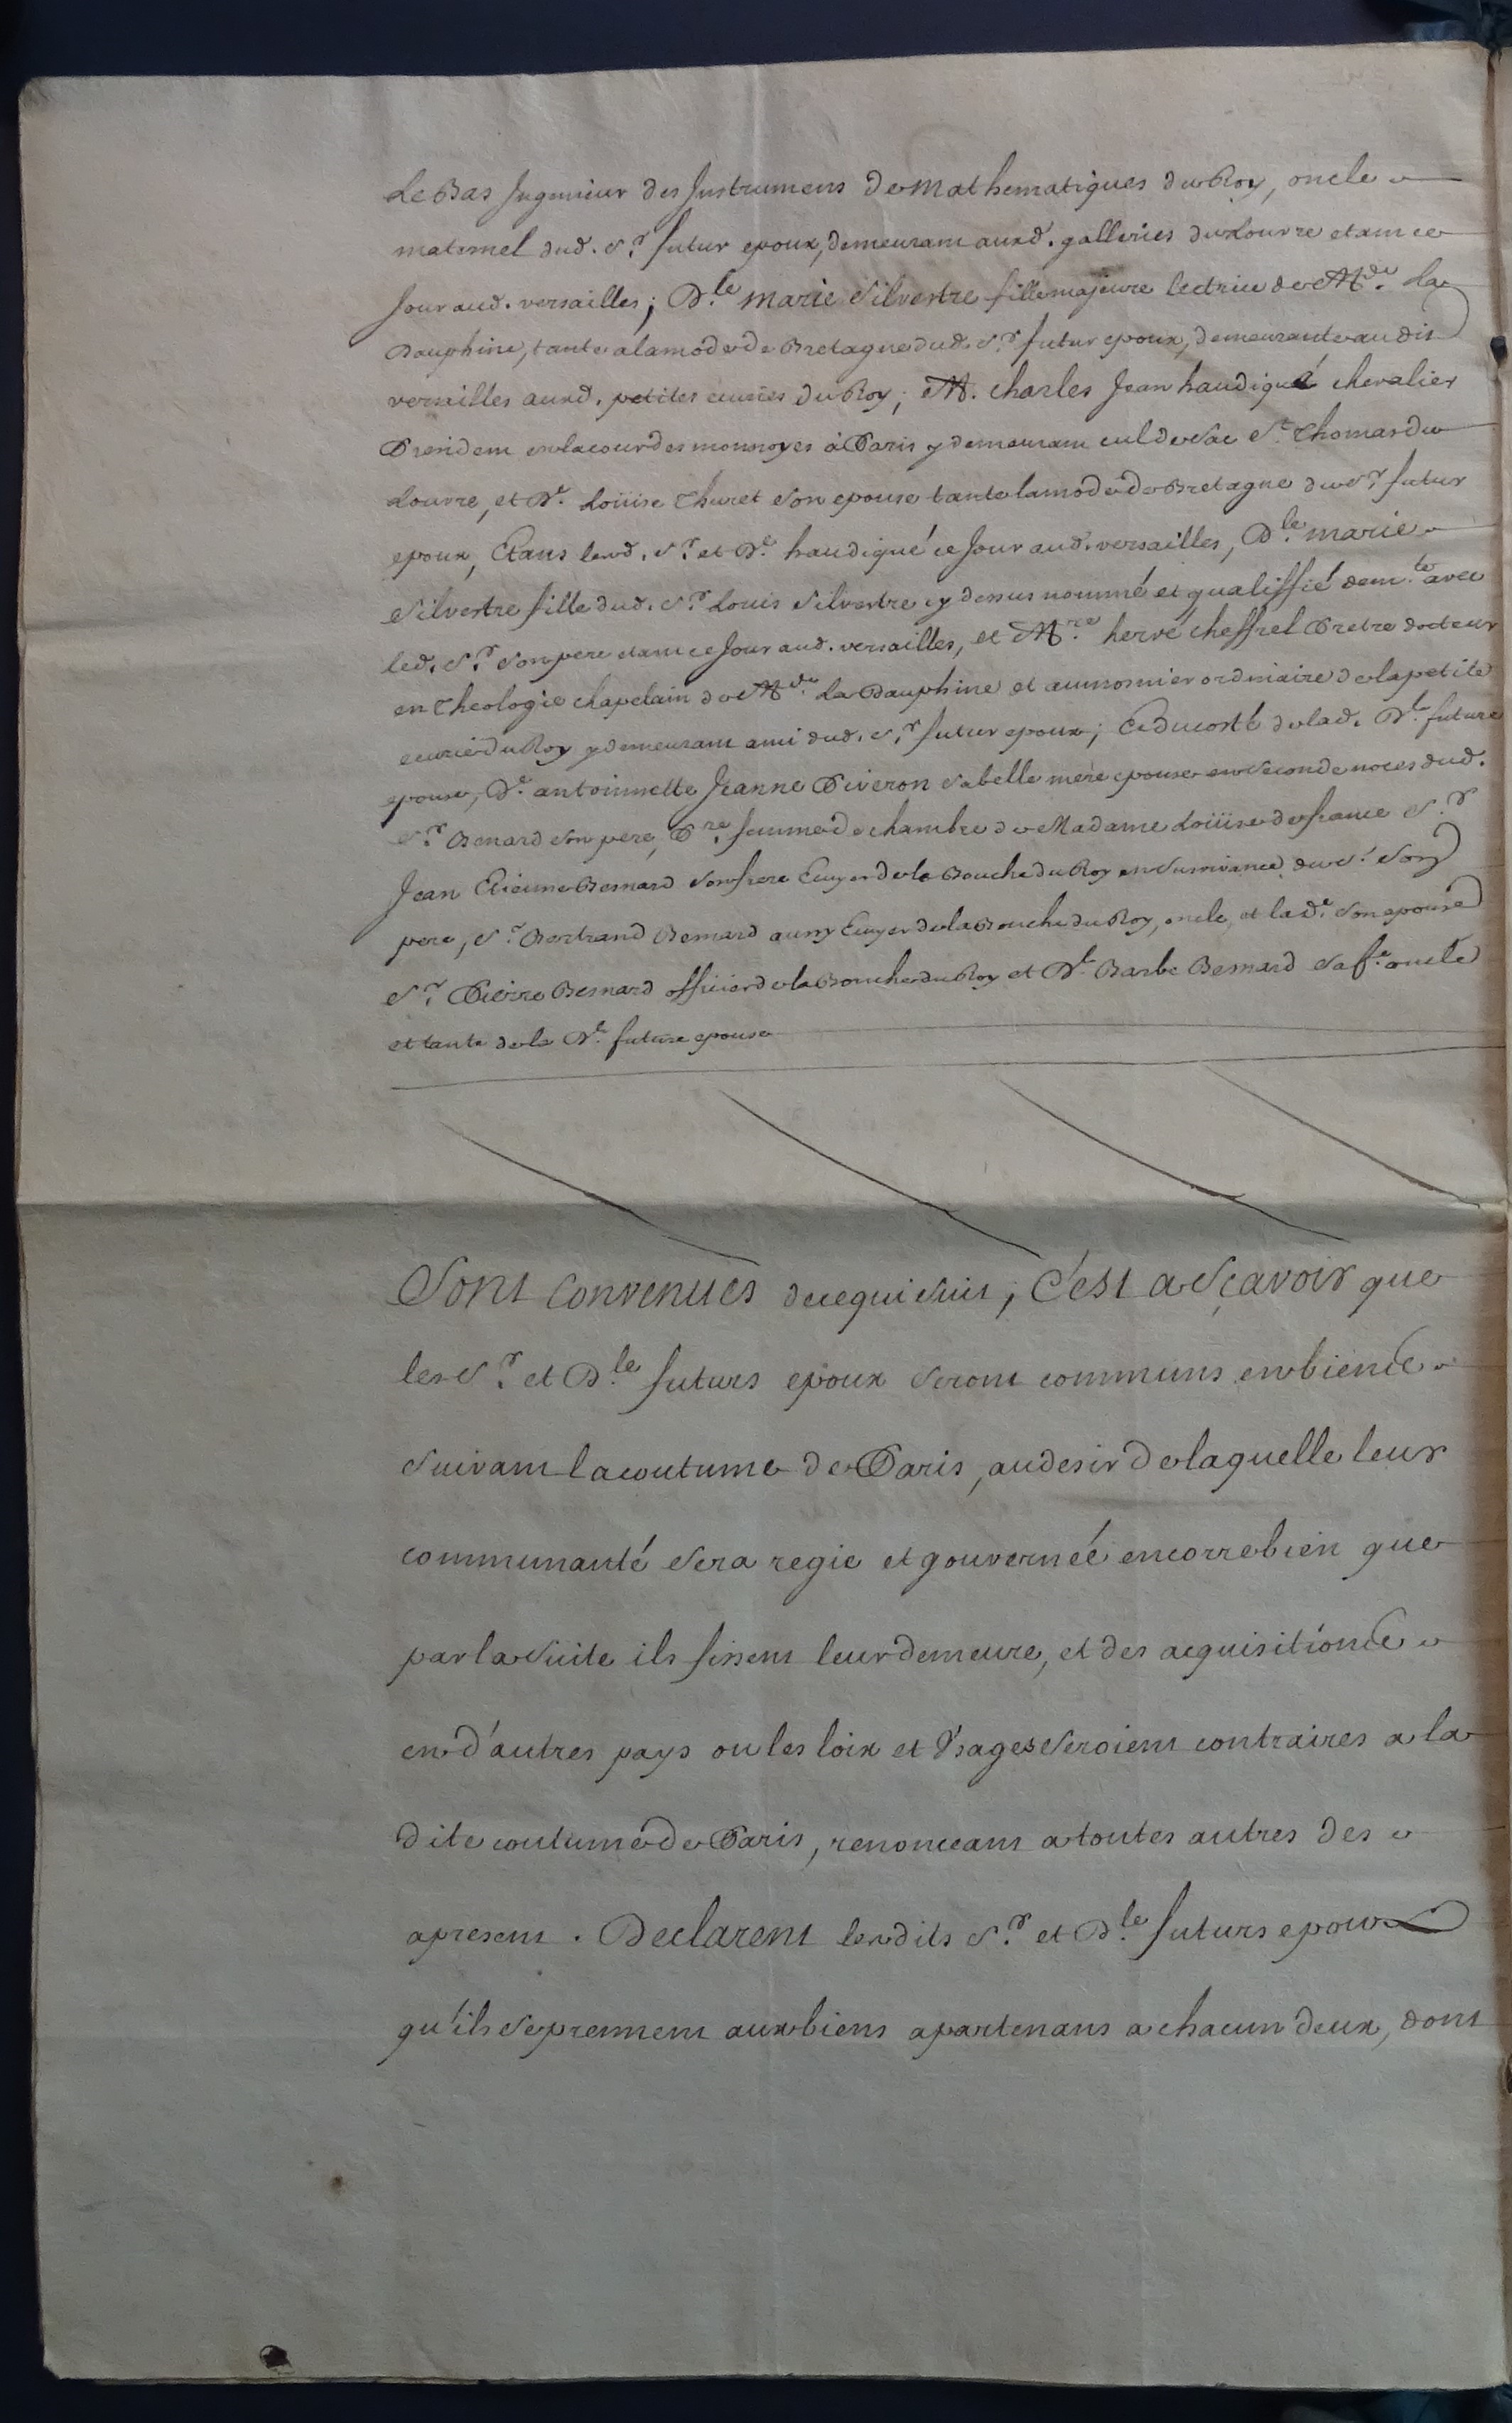 Le Bas Ingenieur des Instrumens de Mathematiques du Roy, oncle
maternel dud. Sr. futur epoux, demeurant auxd. galleries du Louvre etant ce
Jour aud. versailles; Dlle. marie Silvestre fille majeure lectrice de Mde. La
Dauphine, tante a la mode de Bretagne dud. Sr. futur epoux, demeurante au dit
versailles auxd. petites ecuries du Roy; M. Charles Jean haudiqué chevalier
President en la cour des monnoyes à Paris y demeurant cul de Sac St. Thomas du
Louvre, et De. Loüise Thuret Son epouse tante la mode de Bretagne du Sr. futur
epoux, Etans lesd. Sr. et De. haudiqué ce Jour aud. versailles, Dlle. marie
Silvestre fille dud. Sr. Louis Silvestre cy dessus nommé et qualiffié demte. avec
led. Sr. Son pere etant ce Jour aud. versailles, et Mre. hervé cheffrel Pretre docteur
en Theologie chapelain de Mde. La Dauphine et aumosnier ordinaire de la petite
ecurie du Roy y demeurant ami dud. Sr. futur epoux; Et du costé de lad. Dlle. future
epouse, De. antoinnette Jeanne Piveron Sa belle mere epouse en Seconde noces dud.
Sr. Besnard Son pere, Pre. femme de chambre de Madame Loüise de france Sr.
Jean Etienne Besnard Son frere Ecuyer de la Bouche du Roy en Survivance du Sr. Son
pere, Sr. Bertrand Besnard aussy Ecuyer de la Bouche du Roy, oncle, et la De. Son epouse
Sr. Pierre Besnard officier de la Bouche du Roy et De. Barbe Besnard Sa fe. oncle
et tante de la Dlle. future epouse
Sont Convenües de ce qui Suit, C'est a Sçavoir que
les Sr. et Dlle. futurs epoux Seront communs en biens
Suivant la coutume de Paris, au desir de laquelle leur
communauté Sera regie et gouvernée encorre bien que
par la Suite ils fissent leur demeure, et des acquisitions
en d'autres pays ou les loix et Usages Seroient contraires a la
dite coutume de Paris, renonceant a toutes autres des
apresent. Declarent lesdits Sr. et Dlle. futurs epoux
qu'ils Se prennent aux biens apartenans a chacun deux, dont